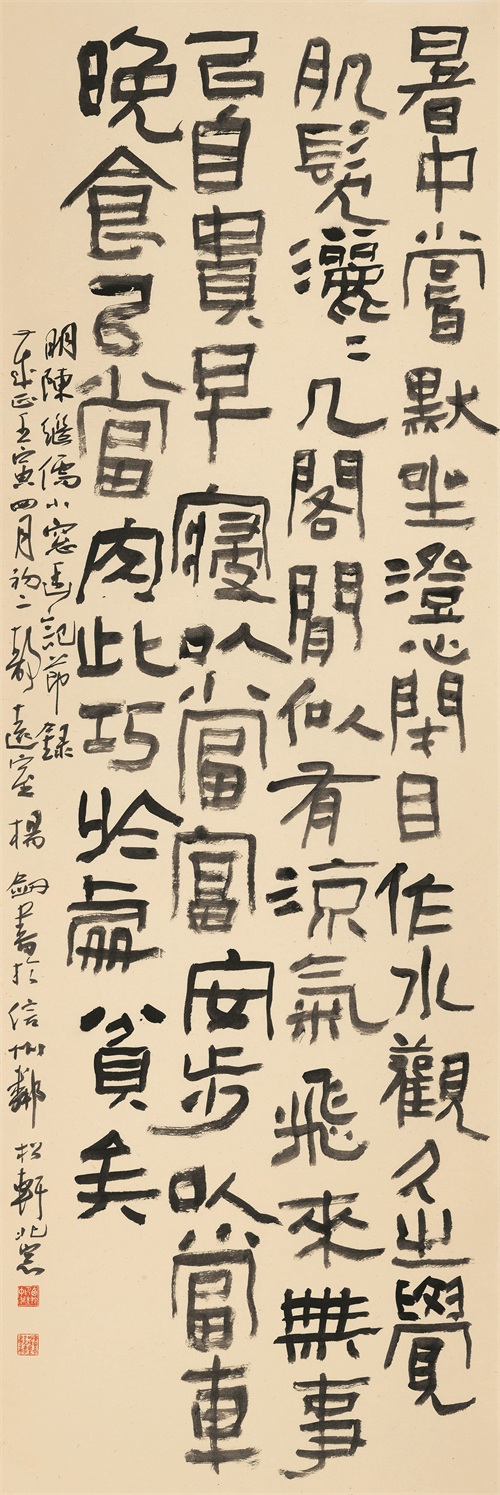 暑中嘗默坐澄心閉目作水觀久之覺
肌髮灑〻几閣閒似有涼氣飛來無事
㠯自貴早寢以當富安步以當車
晚食㠯當肉此巧於處貧矣
明陳繼儒小窗幽記節錄
壬寅四月初二靜遠室楊劍書於信州鄰松軒北窗